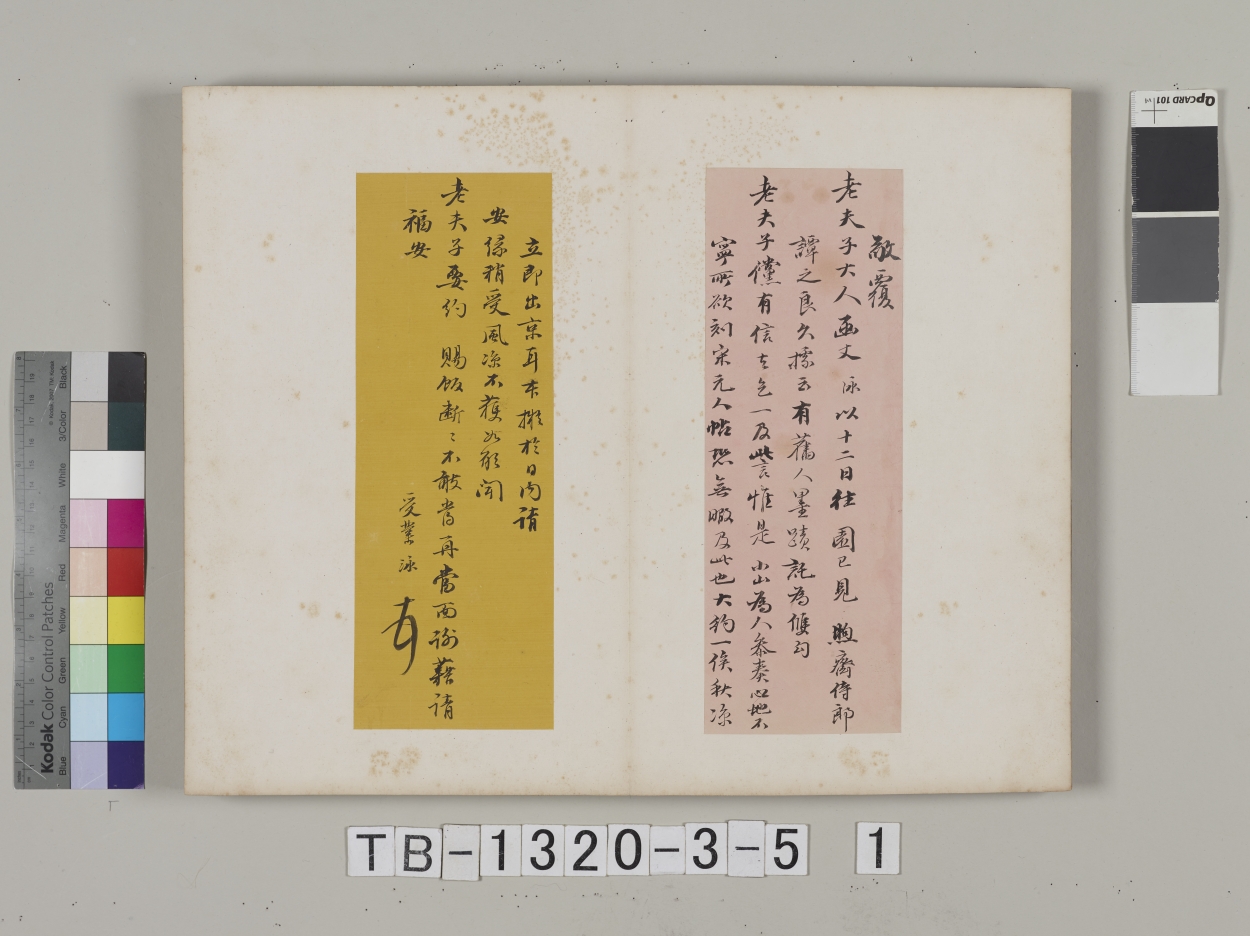 敬覆
老夫子大人函丈 泳以十二日往 園已見 煦齋侍郎
譚之良久據云有舊人墨蹟託為雙勾
老夫子儻有信去乞一及此言惟是 小山為人參奏心地不
寧所欲刻宋元人帖恐無暇及此也大約一俟秋涼
立即出京耳本擬於日內請
安緣稍受風涼不獲如願聞
老夫子要約 賜飯斷〻不敢當再當面謝藉請
福安
受業泳
TB-1320-3-5 1
QPCARD 101 v4
Kodak Color Control Patches
Blue Cyan Green Yellow Red Magenta White 3/Color Black